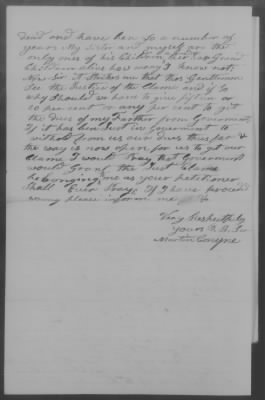 Dead and have ben so a number of
years My Sister and myself are the
only ones of his Children, but Grand
Children alive how many I know not;
Now Sir it Strikes me that those Gentlemen
See the Justice of the Claime and if So
why Should we have to give fifteen or
20 per cent or any per cent to get
the dues of my Farther from Government
If it has ben Just in Government to
withold from us our dues thus far &
the way is now open for us to get our
Claime I would Pray that Government
would Grant the Just Claime
belonging me as your petitioner
Shall Ever Pray; If I have proceeded
wrong please inform me &
Very Respectfully
Yours
Martin Coryne